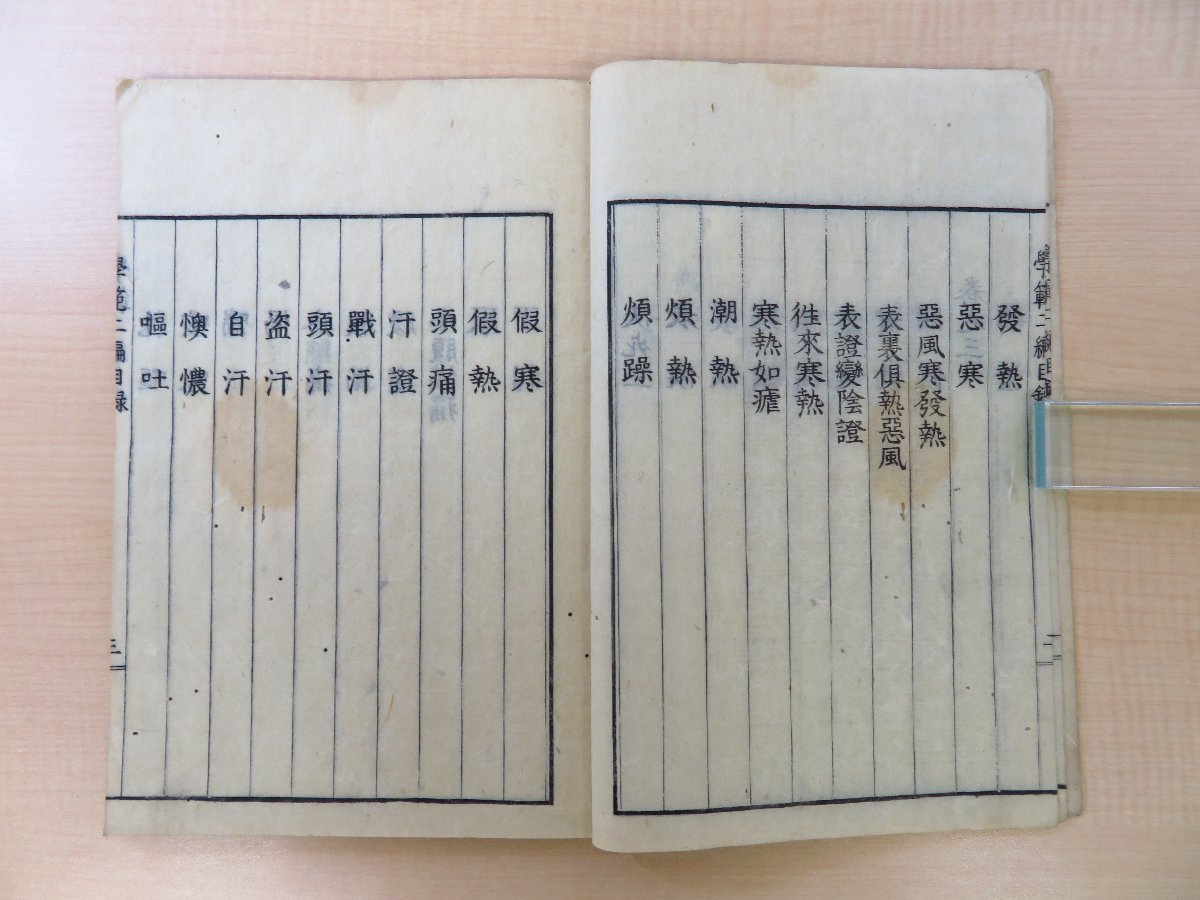 發熱
惡寒
惡風寒發熱
表裏俱熱惡風
表證變陰證
徃來寒熱
寒熱如瘧
潮熱
煩熱
煩躁
學範二編目錄
二
假寒
假熱
頭痛
汗證
戰汗
頭汗
盜汗
自汗
懊憹
嘔吐
學範二編目録
三